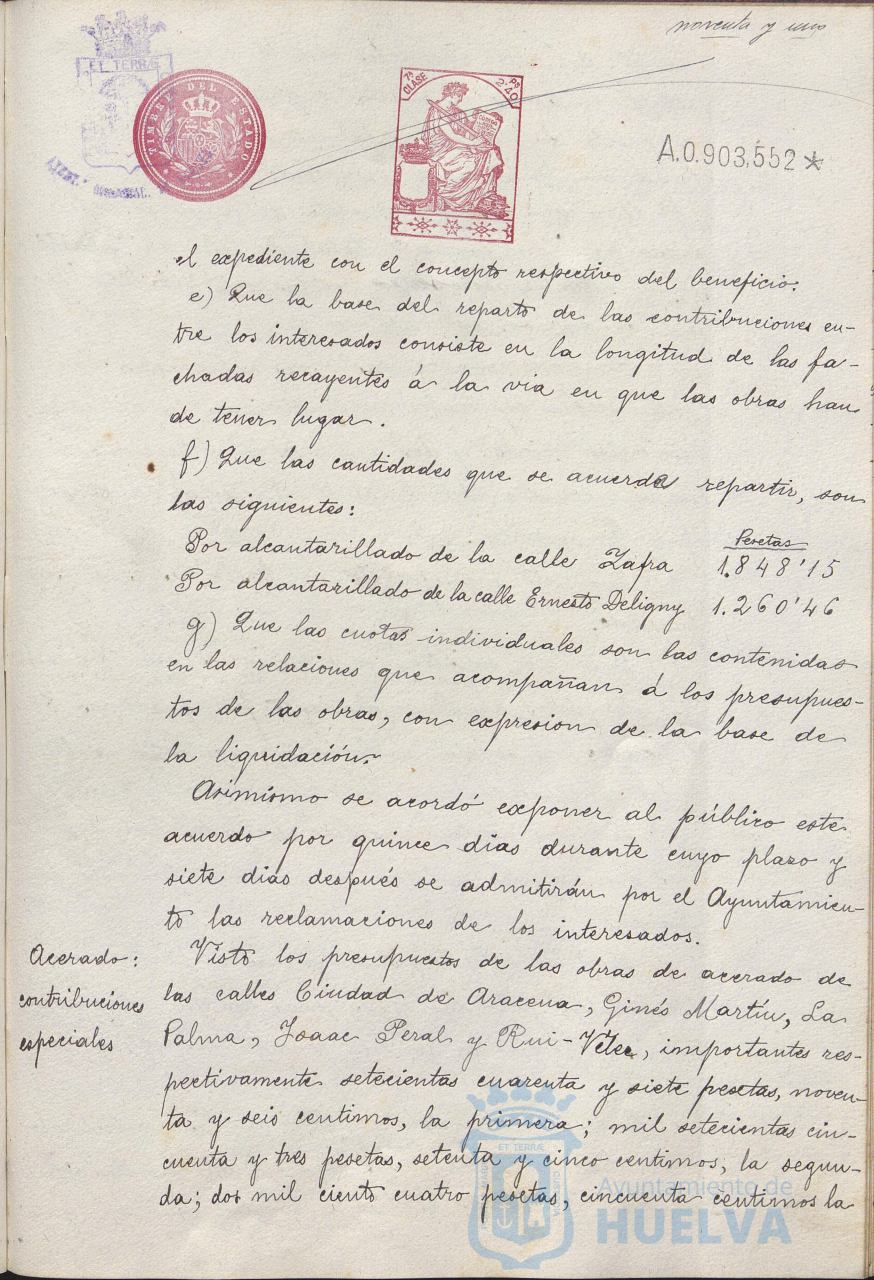 noventa y uno
ET TERRÆ
TIMBRE DEL ESTADO
7ª CLASE
2·40 Ps
A.0.903,552 *
el expediente con el concepto respectivo del beneficio.
e) Que la base del reparto de las contribuciones en-
tre los interesados consiste en la longitud de las fa-
chadas recayentes á la via en que las obras han
de tener lugar.
f) Que las cantidades que se acuerda repartir, son
las siguientes:
Pesetas
Por alcantarillado de la calle Zafra 1.848'15
Por alcantarillado de la calle Ernesto Deligny 1.260'46
g) Que las cuotas individuales son las contenidas
en las relaciones que acompañan á los presupues-
tos de las obras, con expresion de la base de
la liquidación.
Asimismo se acordó exponer al público este
acuerdo por quince dias durante cuyo plazo y
siete dias después se admitirán por el Ayuntamien-
to las reclamaciones de los interesados.
Acerado:
contribuciones
especiales
Visto los presupuestos de las obras de acerado de
las calles Ciudad de Aracena, Ginés Martín, La
Palma, Isaac Peral y Rui-Vélez, importantes res-
pectivamente setecientas cuarenta y siete pesetas, noven-
ta y seis centimos, la primera; mil setecientas cin-
cuenta y tres pesetas, setenta y cinco centimos, la segun-
da; dos mil ciento cuatro pesetas, cincuenta centimos la
ET TERRÆ
Ayuntamiento de
HUELVA